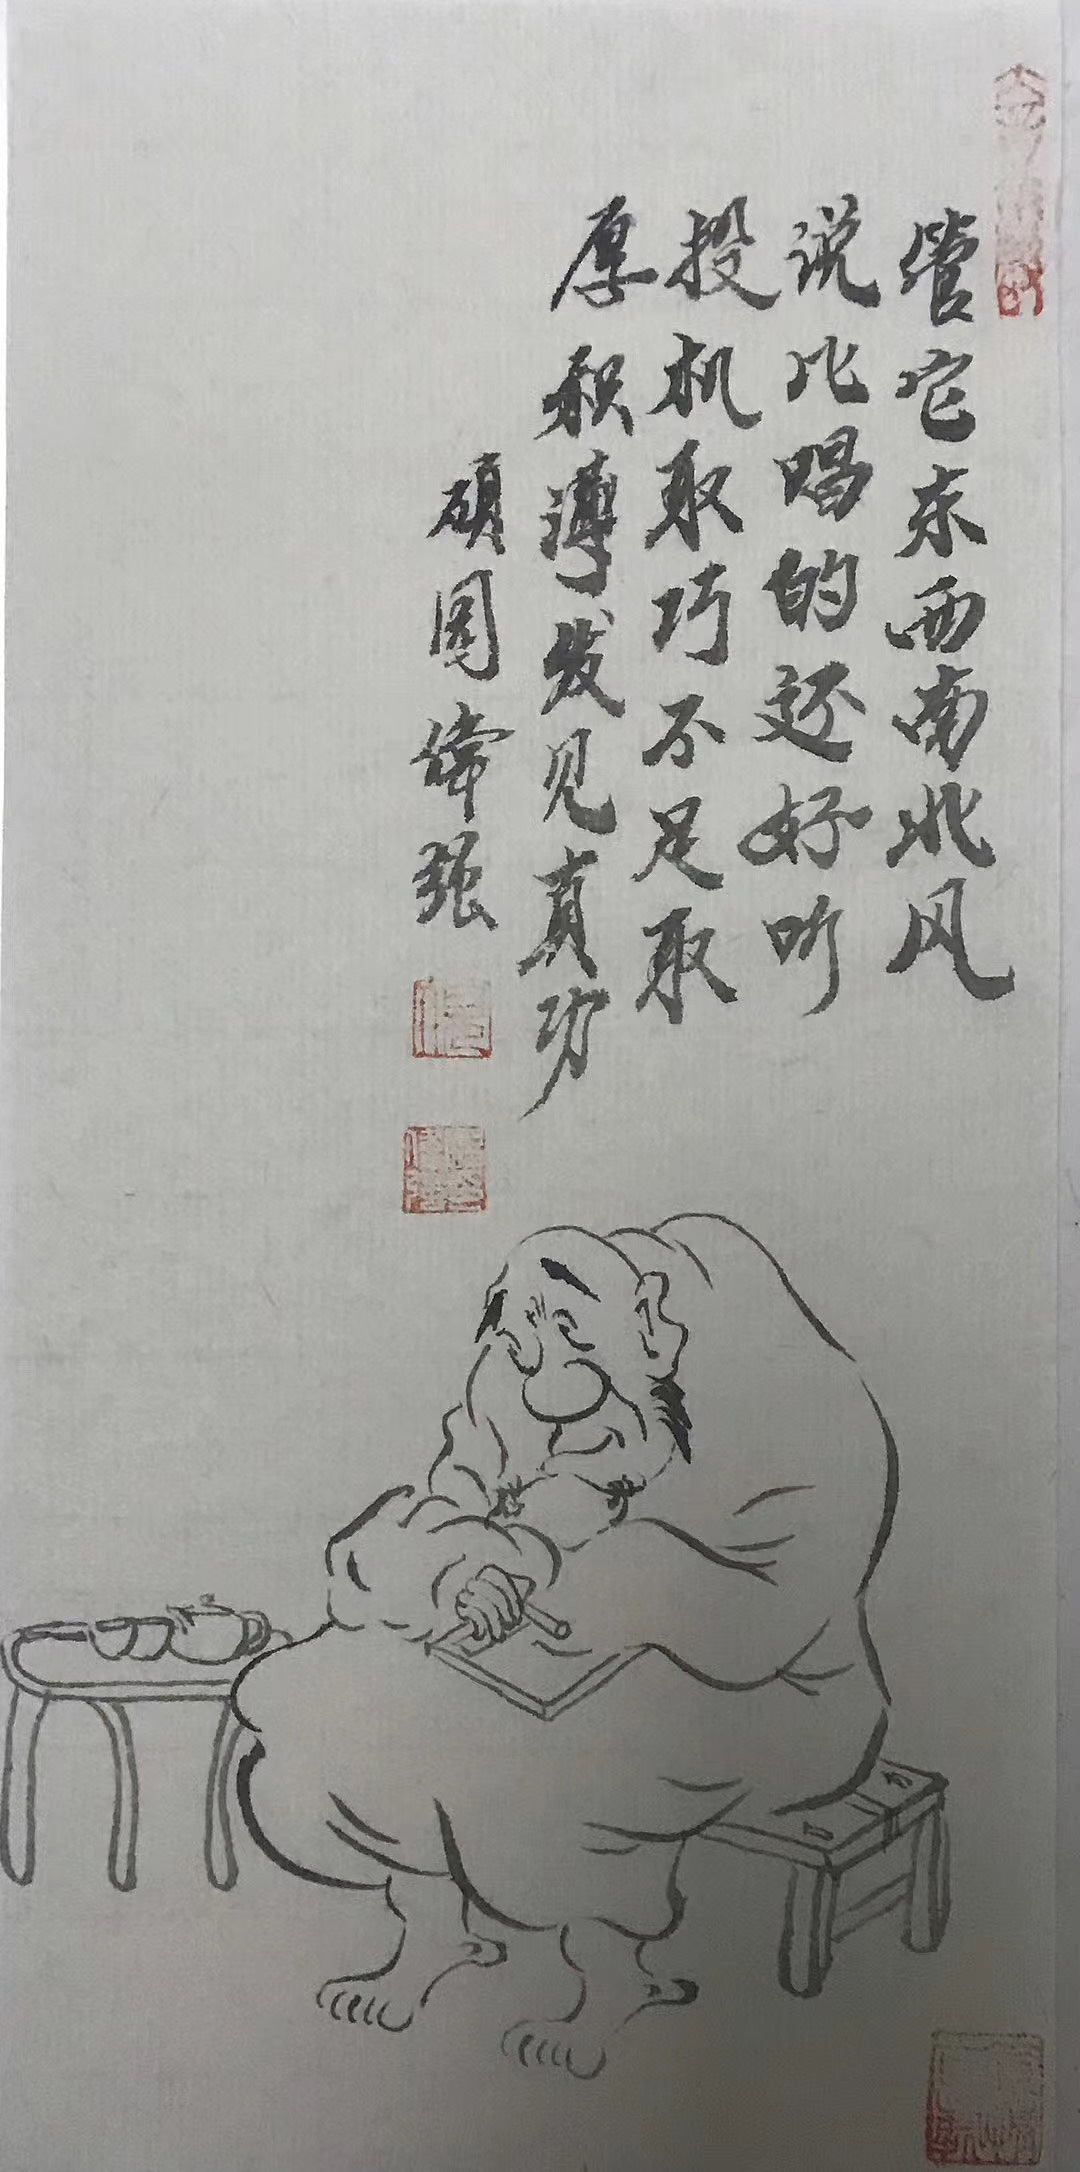 管它东西南北风
说比唱的还好听
投机取巧不足取
厚积薄发见真功
硕园伟强